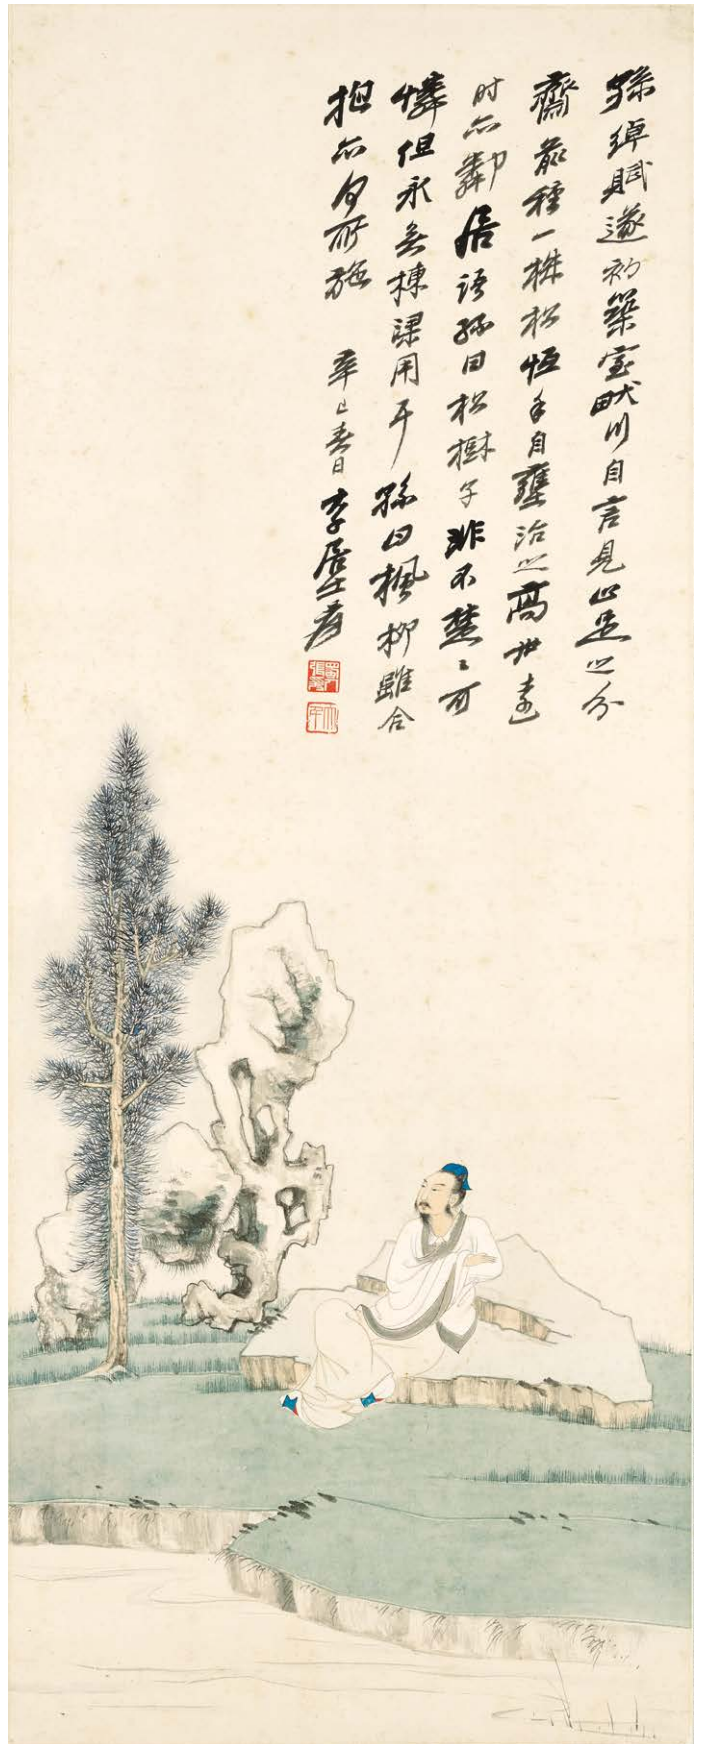 孫綽賦遂初築室畎川自言見止足之分
齋前種一株松恆手自壅治之高世遠
时亦鄰居語孫曰松樹子非不楚〻可
憐但永無棟梁用耳孫曰楓柳雖合
抱亦何所施 辛巳春日 大千居士爰
蜀郡張爰
大千